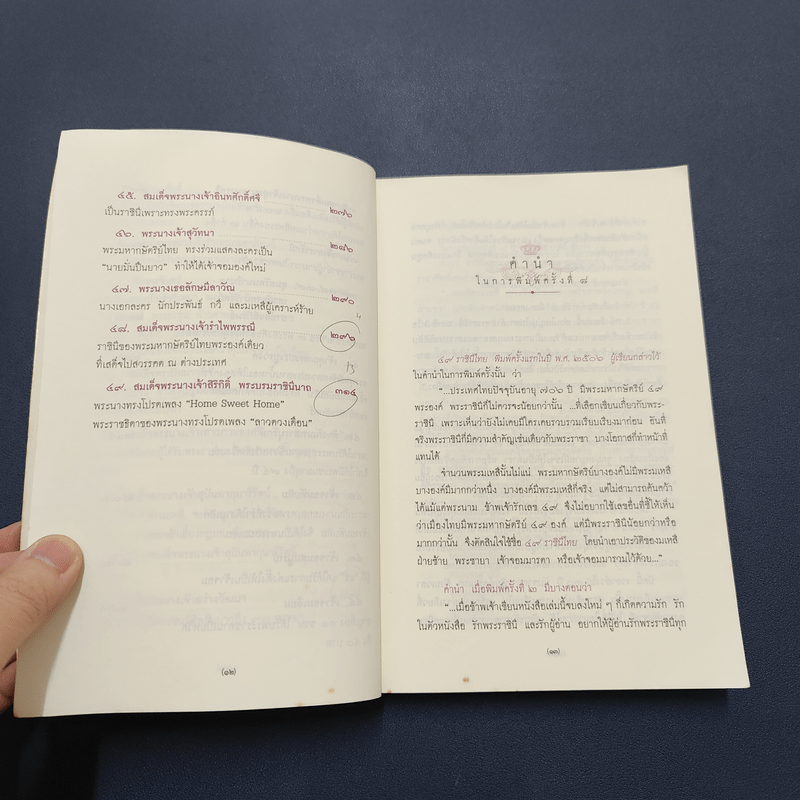 ๔๕. สมเด็จพระนางเจ้าอินทศักดิ์ศจี
เป็นราชินีเพราะทรงพระครรภ์ ๒๗๖
๔๖. พระนางเจ้าสุวัทนา
พระมหากษัตริย์ไทย ทรงร่วมแสดงละครเป็น ๒๘๖
"นายมั่นปืนยาว" ทำให้ได้เจ้าจอมองค์ใหม่
๔๗. พระนางเธอลักษมีลาวัณ
นางเอกละคร นักประพันธ์ กวี และมเหสีผู้เคราะห์ร้าย ๒๙๐
๔๘. สมเด็จพระนางเจ้ารำไพพรรณี
ราชินีของพระมหากษัตริย์ไทยพระองค์เดียว ๒๙๖
ที่เสด็จไปสวรรคต ณ ต่างประเทศ
13
๔๙. สมเด็จพระนางเจ้าสิริกิติ์ พระบรมราชินีนาถ
พระนางทรงโปรดเพลง "Home Sweet Home" ๓๑๔
พระราชธิดาของพระนางทรงโปรดเพลง "ลาวดวงเดือน"
(๑๒)
คำนำ
ในการพิมพ์ครั้งที่ ๘
๔๙ ราชินีไทย พิมพ์ครั้งแรกในปี พ.ศ. ๒๕๐๖ ผู้เขียนกล่าวไว้
ในคำนำในการพิมพ์ครั้งนั้น ว่า
"...ประเทศไทยปัจจุบันอายุ ๗๐๖ ปี มีพระมหากษัตริย์ ๔๙
พระองค์ พระราชินีก็ไม่ควรจะน้อยกว่านั้น ...ที่เลือกเขียนเกี่ยวกับพระ-
ราชินี เพราะเห็นว่ายังไม่เคยมีใครเคยรวบรวมเรียบเรียงมาก่อน อันที่
จริงพระราชินีก็มีความสำคัญเช่นเดียวกับพระราชา บางโอกาสก็ทำหน้าที่
แทนได้
จำนวนพระมเหสีนั้นไม่แน่ พระมหากษัตริย์บางองค์ไม่มีพระมเหสี
บางองค์มีมากกว่าหนึ่ง บางองค์มีพระมเหสีก็จริง แต่ไม่สามารถค้นคว้า
ได้แม้แต่พระนาม ข้าพเจ้ารักเลข ๔๙ จึงไม่อยากใช้เลขอื่นที่ชี้ให้เห็น
ว่าเมืองไทยมีพระมหากษัตริย์ ๔๙ องค์ แต่มีพระราชินีน้อยกว่าหรือ
มากกว่านั้น จึงตัดสินใจใช้ชื่อ ๔๙ ราชินีไทย โดยนำเอาประวัติของมเหสี
ฝ่ายซ้าย พระชายา เจ้าจอมมารดา หรือเจ้าจอมมารวมไว้ด้วย..."
คำนำ เมื่อพิมพ์ครั้งที่ ๒ มีบางตอนว่า
"...เมื่อข้าพเจ้าเขียนหนังสือเล่มนี้จบลงใหม่ ๆ ก็เกิดความรัก รัก
ในตัวหนังสือ รักพระราชินี และรักผู้อ่าน อยากให้ผู้อ่านรักพระราชินีทุก
(๑๓)